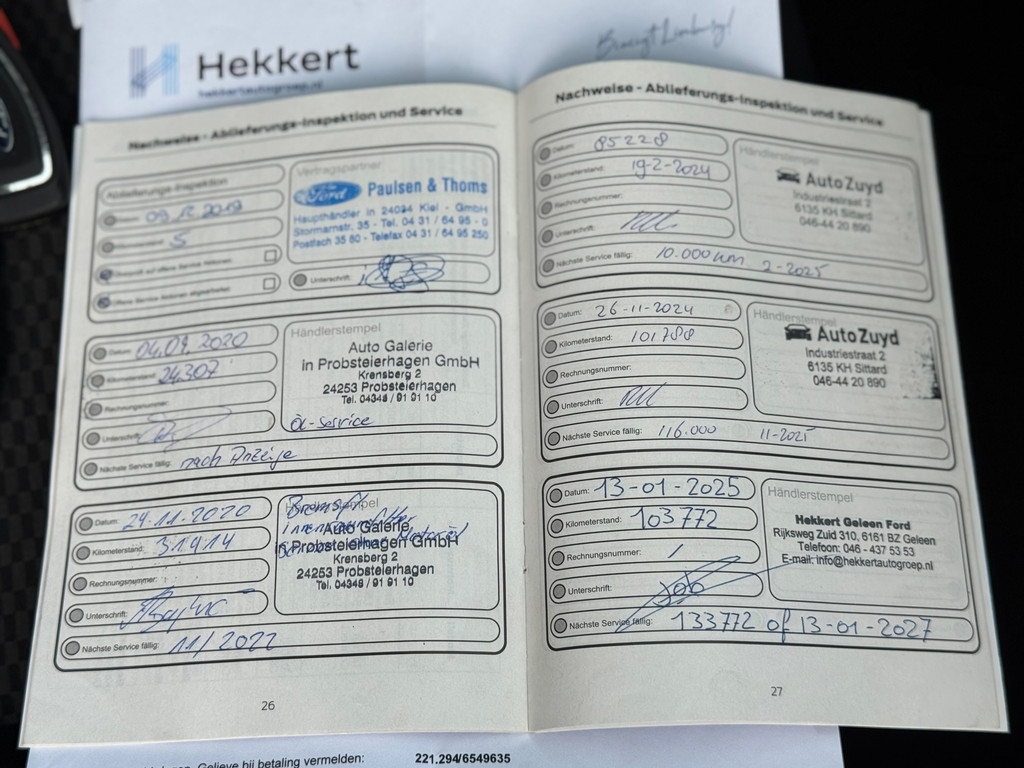 Hekkert
hekkertautogroep.nl
Nachweise - Ablieferungs-Inspektion und Service
Ablieferungs-Inspektion
09.12.2019
5
Vertragspartner
Ford Paulsen & Thoms
Haupthändler in 24034 Kiel - GmbH
Stormarnstr. 35 - Tel. 04 31 / 64 95 - 0
Postfach 35 80 - Telefax 04 31 / 64 95 250
Unterschrift:
Datum: 04.09.2020
Kilometerstand: 24.307
Rechnungsnummer:
Unterschrift:
Nächste Service fällig: nach Anzeige
Händlerstempel
Auto Galerie
in Probsteierhagen GmbH
Krensberg 2
24253 Probsteierhagen
Tel. 04348 / 91 91 10
Öl-Service
Datum: 24.11.2020
Kilometerstand: 31.414
Rechnungsnummer:
Unterschrift:
Nächste Service fällig: 11/2022
Händlerstempel
Auto Galerie
in Probsteierhagen GmbH
Krensberg 2
24253 Probsteierhagen
Tel. 04348 / 91 91 10
26
Nachweise - Ablieferungs-Inspektion und Service
Datum: 85228
Kilometerstand: 19-2-2024
Rechnungsnummer:
Unterschrift:
Nächste Service fällig: 10.000 km 2-2025
Händlerstempel
AutoZuyd
Industriestraat 2
6135 KH Sittard
046-44 20 890
Datum: 26-11-2024
Kilometerstand: 101788
Rechnungsnummer:
Unterschrift:
Nächste Service fällig: 116.000 11-2025
Händlerstempel
AutoZuyd
Industriestraat 2
6135 KH Sittard
046-44 20 890
Datum: 13-01-2025
Kilometerstand: 103772
Rechnungsnummer: /
Unterschrift: Job
Nächste Service fällig: 133772 of 13-01-2027
Händlerstempel
Hekkert Geleen Ford
Rijksweg Zuid 310, 6161 BZ Geleen
Telefoon: 046 - 437 53 53
E-mail: info@hekkertautogroep.nl
27
Gelieve bij betaling vermelden: 221.294/6549635